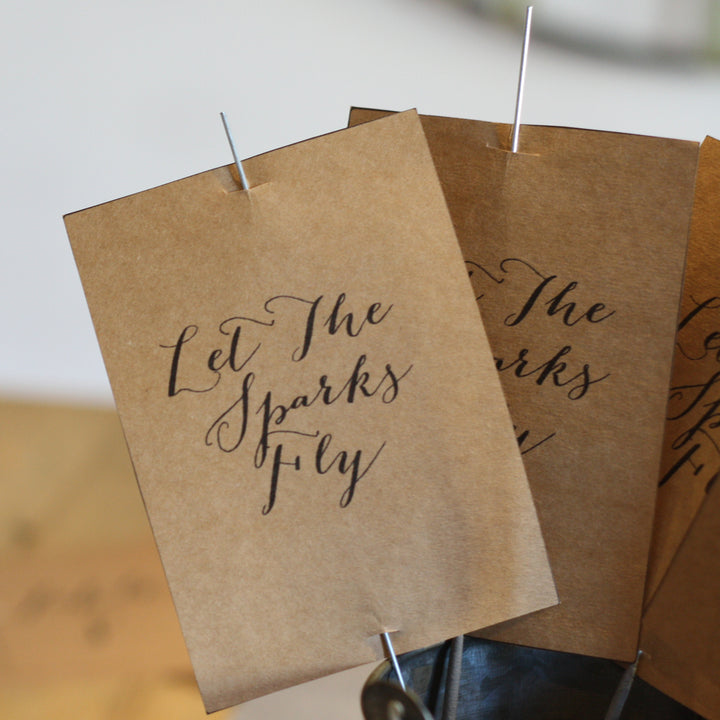 Let The
Sparks
Fly
The
Sparks